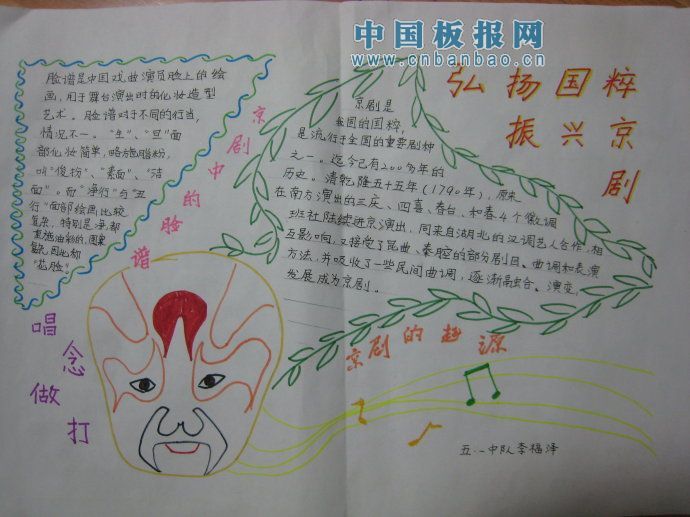 中国板报网
www.cnbanbao.cn
弘扬国粹
振兴京剧
脸谱是中国戏曲演员脸上的绘
画，用于舞台演出时的化妆造型
艺术。脸谱对于不同的行当，
情况不一。“生”、“旦”面
部化妆简单，略施脂粉，
叫“俊扮”、“素面”、“洁
面”。而“净行”与“丑
行”面部绘画比较
复杂，特别是净，都
重施油彩的，图案
复杂，因此称
“花脸”。
京剧中的脸谱
京剧是
我国的国粹，
是流行于全国的重要剧种
之一。迄今已有200多年的
历史。清乾隆五十五年（1790年），原来
在南方演出的三庆、四喜、春台、和春4个徽调
班社陆续进京演出，同来自湖北的汉调艺人合作，相
互影响，又接受了昆曲、秦腔的部分剧目。曲调和表演
方法，并吸收了一些民间曲调，逐渐融合。演变，
发展成为京剧。
京剧的起源
唱念做打
五.一中队李福泽